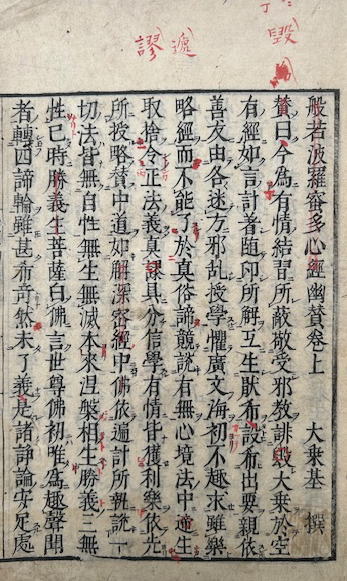 毀
遞
謬
般若波羅蜜多心經幽賛卷上　大乗基　撰
賛曰今為有情結習所蔽敬受邪教誹毀大乗於空
有經如言計著随印所解互生猒希設希出要親依
善友由各迷方邪乱授學懼廣文海初不趣求雖樂
略經而不能了於真俗諦競説有無心境法中逓生
取捨令正法義真謬具分信學有情皆獲利樂依先
所授略賛中道如解深密經中佛依遍計所執説一
切法皆無自性無生無滅本來涅槃相生勝義三無
性已時勝義生菩薩白佛言世尊佛初唯為趣聲聞
者轉四諦輪雖甚希奇然未了義是諸諍論安足處